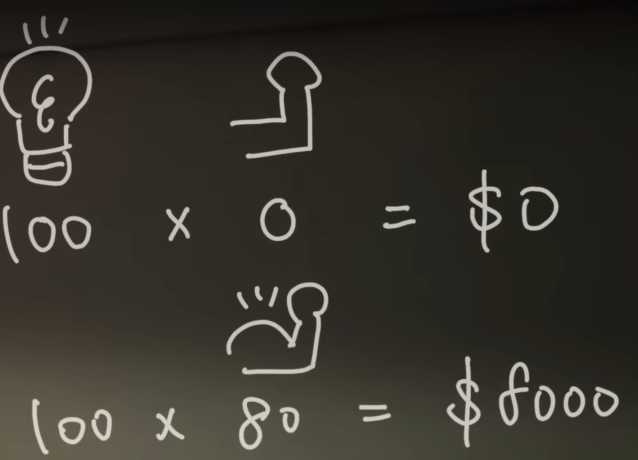 100 x 0 = $0
100 x 80 = $8000